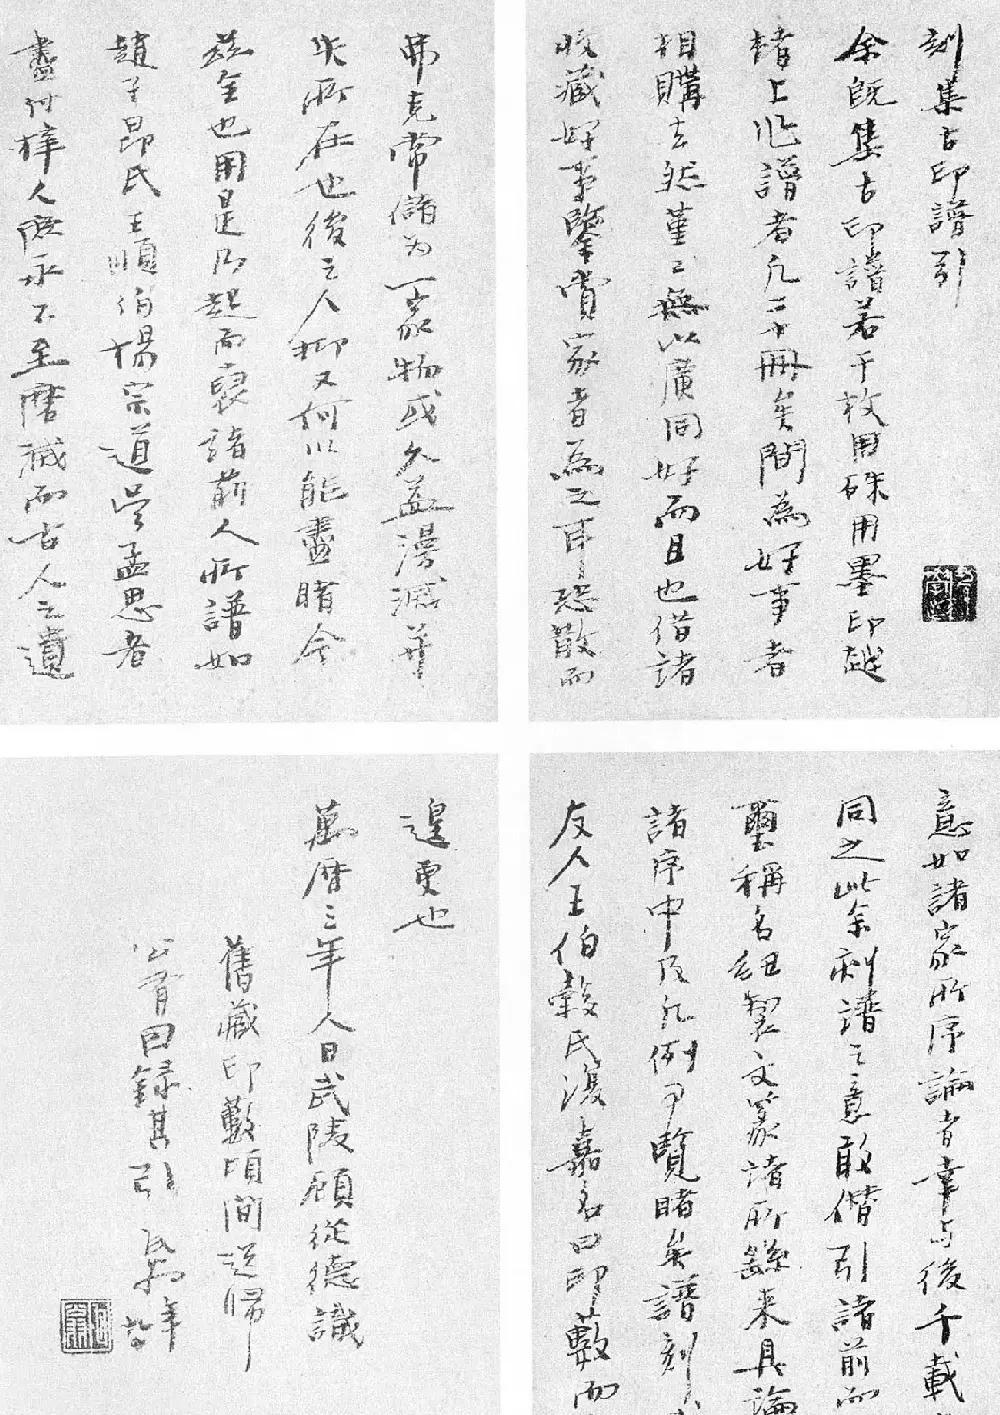 刻集古印譜引
余既集古印譜若干枚用硃用墨印越
楮上作譜者凡二十冊矣間為好事者
相購去然堇〻無以廣同好而且也借諸
收藏好事鑒賞家者為之耳恐散而
弗克常儲為一家物或久益漫滅并
失所在也後之人抑又何以能盡睹今
茲全也用是乃起而裒諸前人所譜如
趙子昂氏王順伯楊宗道吾孟思者
盡付梓人庶永不至磨滅而古人之遺
意如諸家所序論者幸与後千載
同之此余刻譜之意敢僭引諸前而
璽稱名紐製文篆諸所繇来具論
諸序中及凡例可覽睹矣譜刻
友人王伯榖氏溭嘉名曰印藪而
遑更也
萬曆三年人日武陵顧從德識
舊藏印藪頃間送歸
公胥因錄其引